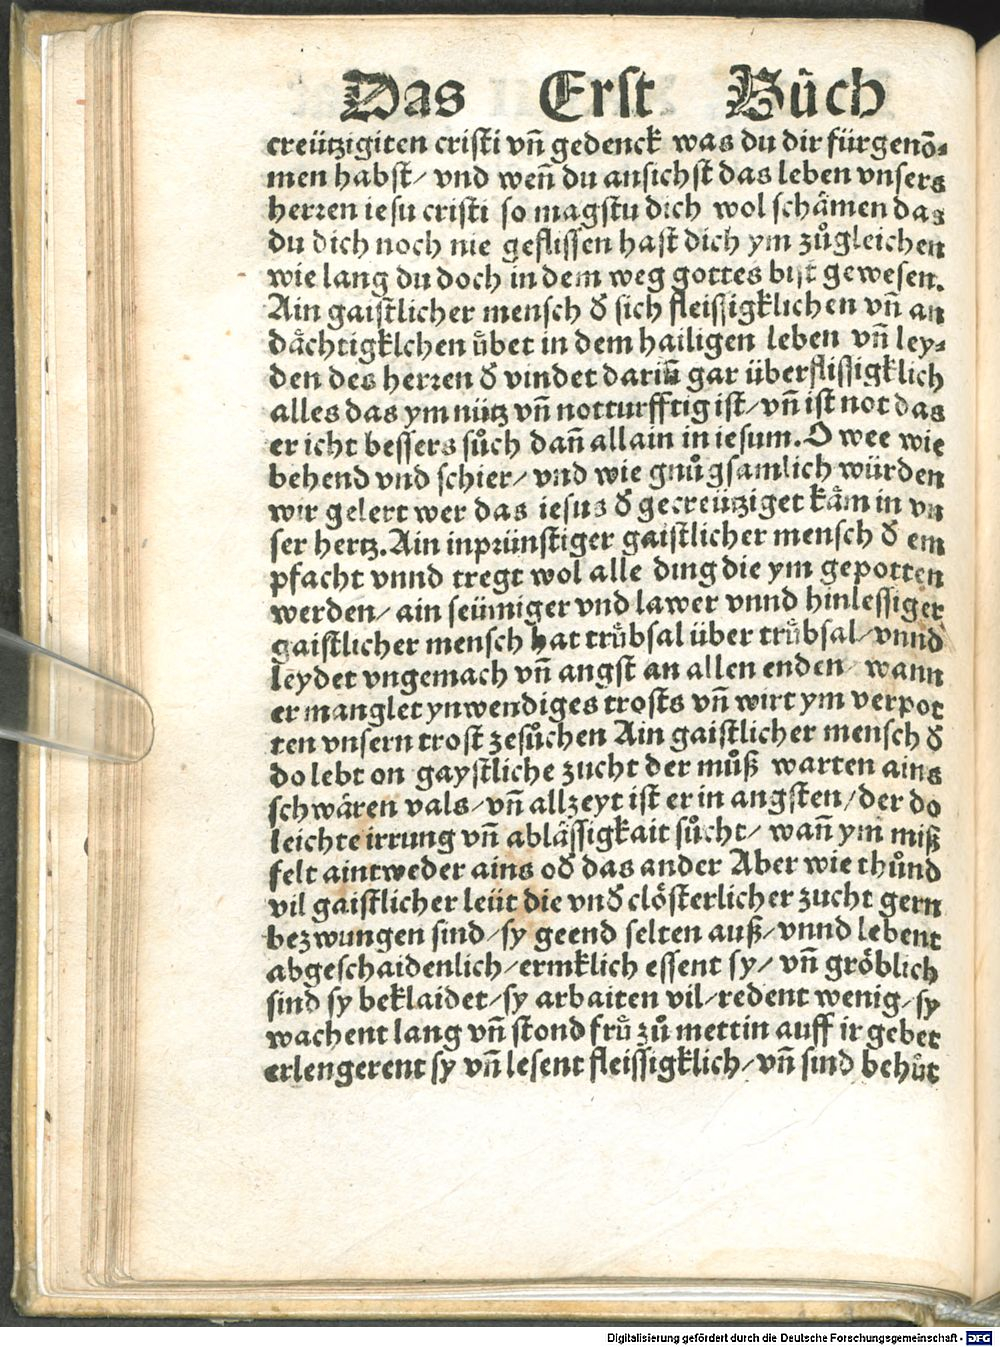 Das Erst Bůch
creützigiten cristi vn̄ gedenck was du dir fürgenō⸗
men habst/ vnd wen̄ du ansichst das leben vnsers
herꝛen iesu cristi so magstu dich wol schämen das
du dich noch nie geflissen hast dich ym zůgleichen
wie lang du doch in dem weg gottes bist gewesen.
Ain gaistlicher mensch ď sich fleissigklichen vn̄ an
dächtigklchen ůbet in dem hailigen leben vn̄ ley⸗
den des herꝛen ď vindet darin̄ gar überflissigklich
alles das ym nütz vn̄ notturfftig ist/ vn̄ ist not das
er icht bessers sůch dan̄ allain in iesum. O wee wie
behend vnd schier/ vnd wie gnůgsamlich würden
wir gelert wer das iesus ď gecreütziget käm in vn
ser hertz. Ain inpꝛünstiger gaistlicher mensch ď em
pfacht vnnd tregt wol alle ding die ym gepotten
werden/ ain seümiger vnd lawer vnnd hinlessiger
gaistlicher mensch hat trůbsal über trůbsal/ vnnd
leydet vngemach vn̄ angst an allen enden/ wann
er manglet ynwendiges trosts vn̄ wirt ym verpot
ten vnsern trost zesůchen Ain gaistlicher mensch ď
do lebt on gaystliche zucht der můß warten ains
schwären vals/ vn̄ allzeyt ist er in angsten/ der do
leichte irrung vn̄ ablässigkait sůcht/ wan̄ ym miß
felt aintweder ains oď das ander Aber wie thůnd
vil gaistlicher leüt die vnď clösterlicher zucht gern
bezwungen sind/ sy geend selten auß/ vnnd lebent
abgeschaidenlich/ ermklich essent sy/ vn̄ gröblich
sind sy beklaidet/ sy arbaiten vil/ redent wenig/ sy
wachent lang vn̄ stond frů zů mettin auff ir gebet
erlengerent sy vn̄ lesent fleissigklich/ vn̄ sind behůt
Digitalisierung gefördert durch die Deutsche Forschungsgemeinschaft - DFG